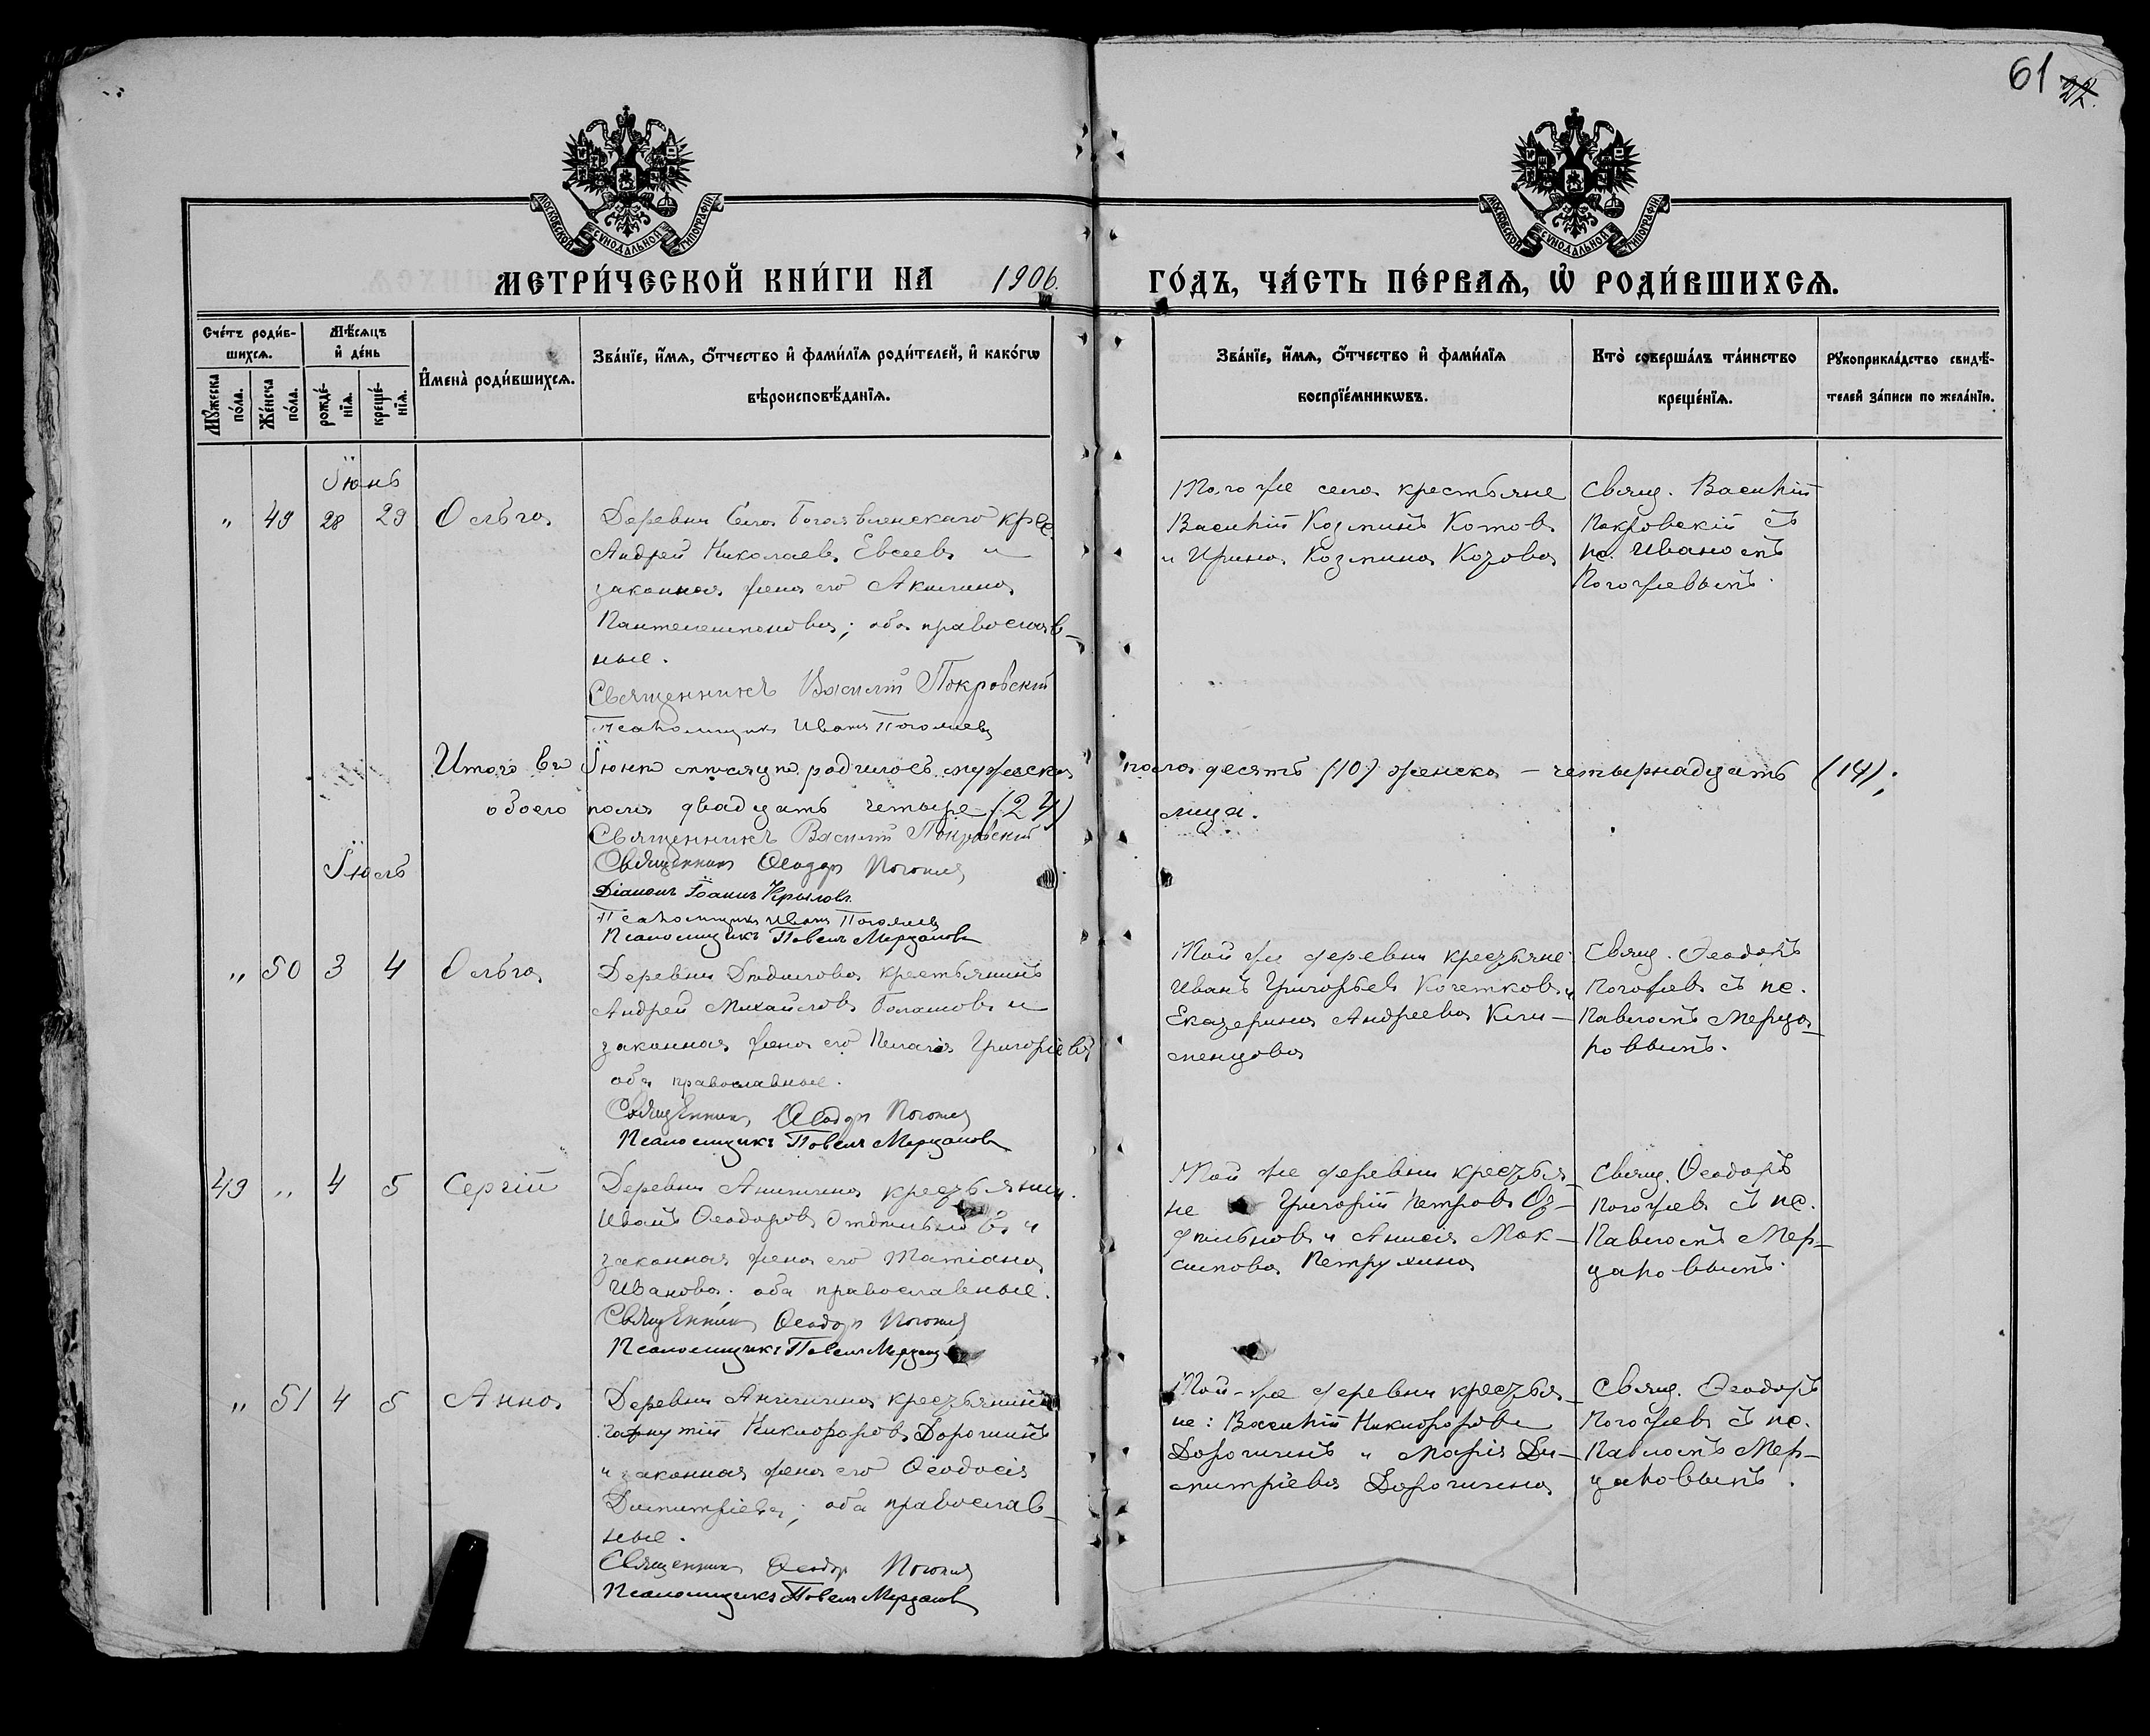 61 27.
МОСКОВСКОЙ СѴНОДАЛЬНОЙ ТИПОГРАФІИ
МОСКОВСКОЙ СѴНОДАЛЬНОЙ ТИПОГРАФІИ
МЕТРИ́ЧЕСКОЙ КНИ́ГИ НА 1906. ГО́ДЪ, ЧА́СТЬ ПЕ́РВАѦ, Ѡ҆ РОДИ́ВШИХСѦ.
Сче́тъ роди́в-
шихсѧ.
Мꙋжеска по́ла.
Же́нска по́ла.
Мѣ́сѧцъ
и҆ де́нь
рожде́-
нїѧ.
креще́-
нїѧ.
И҆мена̀ роди́вшихсѧ.
Зва́нїе, и҆́мѧ, ѻ҆́тчество и҆ фами́лїѧ роди́телей, и҆ како́гѡ
вѣроисповѣ́данїѧ.
Зва́нїе, и҆́мѧ, ѻ҆́тчество и҆ фами́лїѧ
воспрїе́мникѡвъ.
Кто̀ соверша́лъ та́инство
креще́нїѧ.
Рꙋкоприкла́дство свидѣ́-
телей за́писи по жела́нїю.
Іюнь
„ 49 28 29 Ольга
Деревни Села Богоявленскаго крес.
Андрей Николаевъ Евсеевъ и
законная жена его Акилина
Пантелеимонова; оба православ-
ные.
Священникъ Василій Покровскій
Псаломщикъ Иванъ Погожевъ
Того же села крестьяне
Василій Козминъ Котовъ
и Ирина Козмина Козова
Свящ. Василій
Покровскій съ
пс. Иваномъ
Погожевымъ.
Итого въ Іюнѣ мѣсяцѣ родилось мужеска пола десять (10) женска – четырнадцать (14);
обоего пола двадцать четыре (24) лица.
Священникъ Василій Покровскій
Священникъ Ѳеодоръ Погожев
Діаконъ Іоаннъ Крыловъ
Псаломщикъ Иванъ Погожевъ
Псаломщикъ Павелъ Мерцаловъ
Іюль
„ 50 3 4 Ольга
Деревни Дѣдилова крестьянинъ
Андрей Михайловъ Балашовъ и
законная жена его Пелагія Григоріева
оба православные.
Священникъ Ѳеодоръ Погожев
Псаломщикъ Павелъ Мерцаловъ
Той же деревни крестьяне
Иванъ Григорьевъ Кочетковъ и
Екатерина Андреева Кли-
менцова
Свящ. Ѳеодоръ
Погожевъ съ пс.
Павломъ Мерца-
ловымъ.
49 „ 4 5 Сергій
Деревни Аничкина крестьянин.
Иванъ Ѳеодоровъ Отдѣльновъ и
законная жена его Татіана
Иванова; оба православные.
Священникъ Ѳеодоръ Погожев
Псаломщикъ Павелъ Мерцал
Той же деревни крестья-
не Григорій Петровъ От-
дѣльновъ и Анисія Мак-
симова Петрухина
Свящ. Ѳеодоръ
Погожевъ съ пс.
Павломъ Мер-
цаловымъ.
„ 51 4 5 Анна
Деревни Аничкина крестьянинъ
Никифоровъ Дорогинъ
и законная жена его Ѳеодосія
Димитріева; оба православ-
ные.
Священникъ Ѳеодоръ Погожев
Псаломщикъ Павелъ Мерцаловъ
Той-же деревни крестья-
не: Василій Никифоровъ
Дорогинъ и Марія Ди-
митріева Дорогина
Свящ. Ѳеодоръ
Погожевъ съ пс.
Павломъ Мер-
цаловымъ.